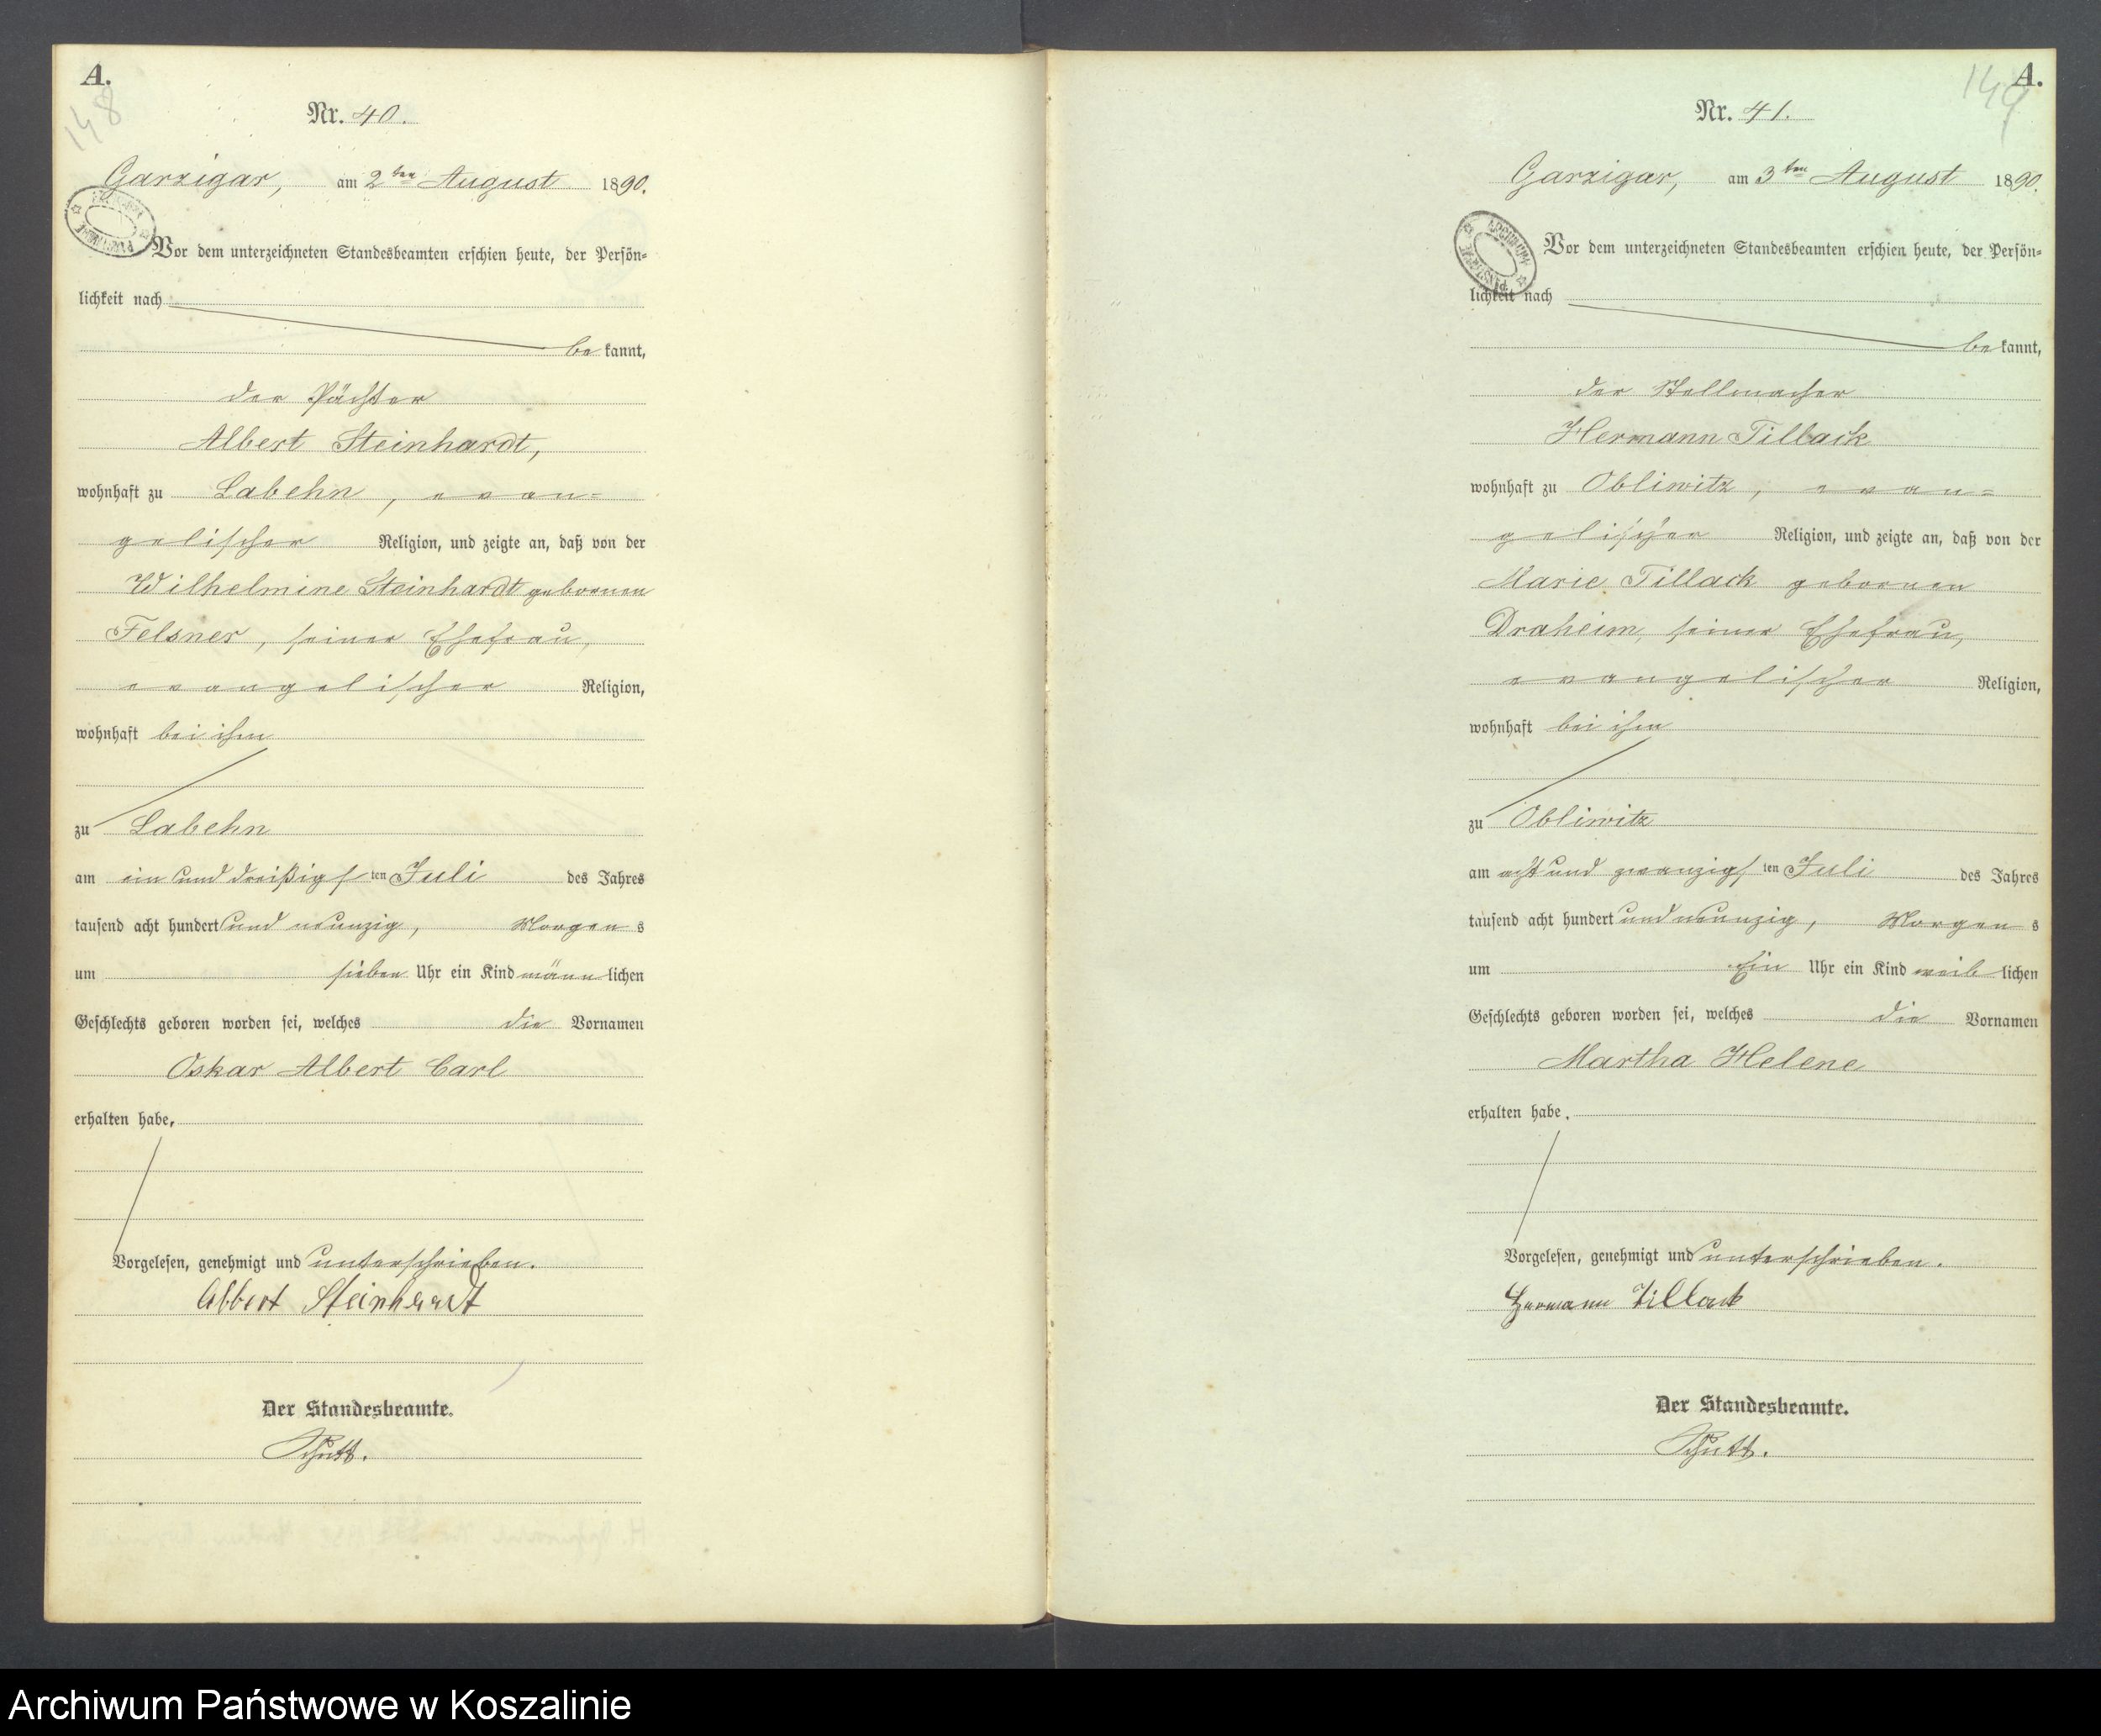 A.
148
Nr. 40.
Garzigar, am 2ten August 1890.
Vor dem unterzeichneten Standesbeamten erschien heute, der Persön-
lichkeit nach
be kannt,
der Pächter
Albert Steinhardt,
wohnhaft zu Labehn, evan-
gelischer Religion, und zeigte an, daß von der
Wilhelmine Steinhardt gebornen
Felsner, seiner Ehefrau,
evangelischer Religion,
wohnhaft bei ihm
zu Labehn
am ein und dreißigsten Juli des Jahres
tausend acht hundert und neunzig, Morgens
um sieben Uhr ein Kind männlichen
Geschlechts geboren worden sei, welches die Vornamen
Oskar Albert Carl
erhalten habe.
Vorgelesen, genehmigt und unterschrieben.
Albert Steinhardt
Der Standesbeamte.
149
A.
Nr. 41.
Garzigar, am 3ten August 1890.
Vor dem unterzeichneten Standesbeamten erschien heute, der Persön-
lichkeit nach
be kannt,
der Stellmacher
Hermann Tillack
wohnhaft zu Obliwitz, evan-
gelischer Religion, und zeigte an, daß von der
Marie Tillack gebornen
Draheim, seiner Ehefrau,
evangelischer Religion,
wohnhaft bei ihm
zu Obliwitz
am acht und zwanzigsten Juli des Jahres
tausend acht hundert und neunzig, Morgens
um Ein Uhr ein Kind weiblichen
Geschlechts geboren worden sei, welches die Vornamen
Martha Helene
erhalten habe.
Vorgelesen, genehmigt und unterschrieben.
Hermann Tillack
Der Standesbeamte.
Archiwum Państwowe w Koszalinie